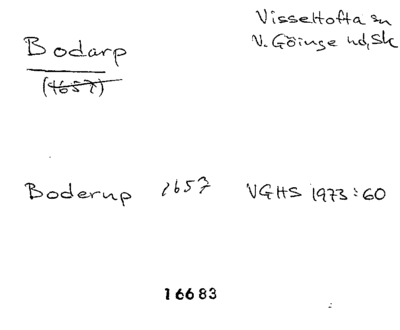 Bodarp
(1657)
Visseltofta sn
V. Göinge hd, Sk
Boderup 1657 VGHS 1973:60
16683